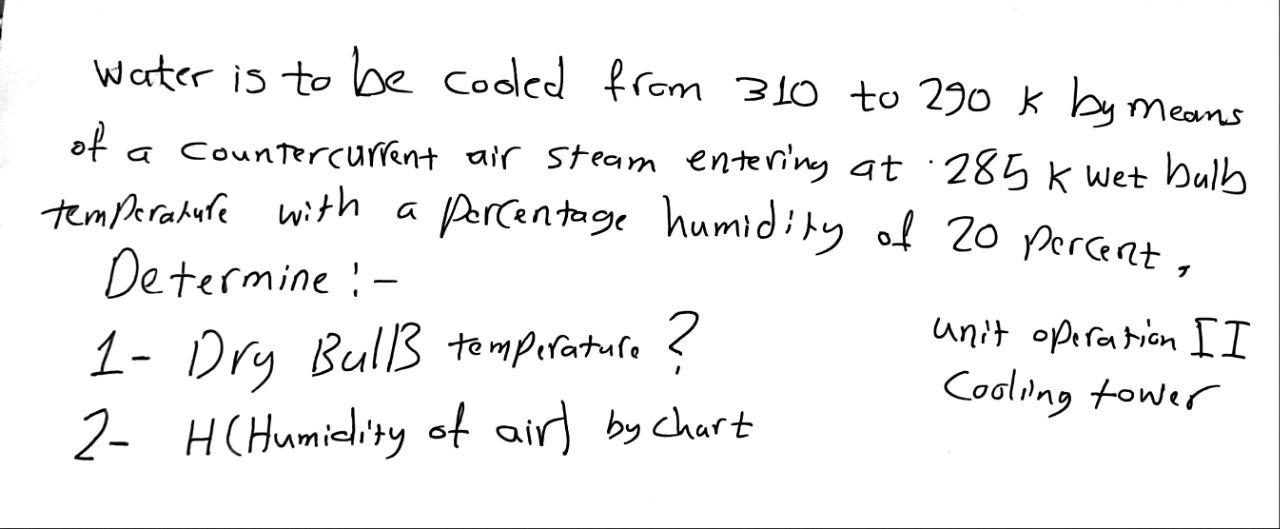 Water is to be cooled from 310 to 290 K by means
of a countercurrent air steam entering at 285 K wet bulb
temperature with a percentage humidity of 20 percent,
Determine :-
1- Dry BulB temperature ?
2- H (Humidity of air) by chart
unit operation II
Cooling tower